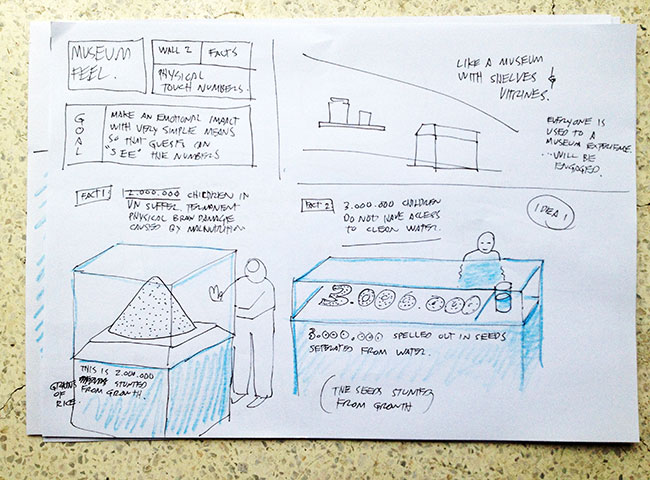 MUSEUM
FEEL.
WALL 2
FACTS
PHYSICAL
TOUCH NUMBERS.
GOAL
MAKE AN EMOTIONAL IMPACT
WITH VERY SIMPLE MEANS
SO THAT GUESTS CAN
"SEE" THE NUMBERS
LIKE A MUSEUM
WITH SHELVES &
VITRINES.
EVERYONE IS
USED TO A
MUSEUM EXPERIENCE
...WILL BE
ENGAGED.
FACT 1
2.000.000 CHILDREN IN
VN SUFFER PERMANENT
PHYSICAL BRAIN DAMAGE
CAUSED BY MALNUTRITION
FACT 2
3.000.000 CHILDREN
DO NOT HAVE ACCESS
TO CLEAN WATER.
IDEA 1
THIS IS 2.000.000
GRAINS OF RICE.
STUNTED
FROM GROWTH.
3.000.000
3.000.000 SPELLED OUT IN SEEDS
SEPERATED FROM WATER.
(THE SEEDS STUNTED
FROM GROWTH)